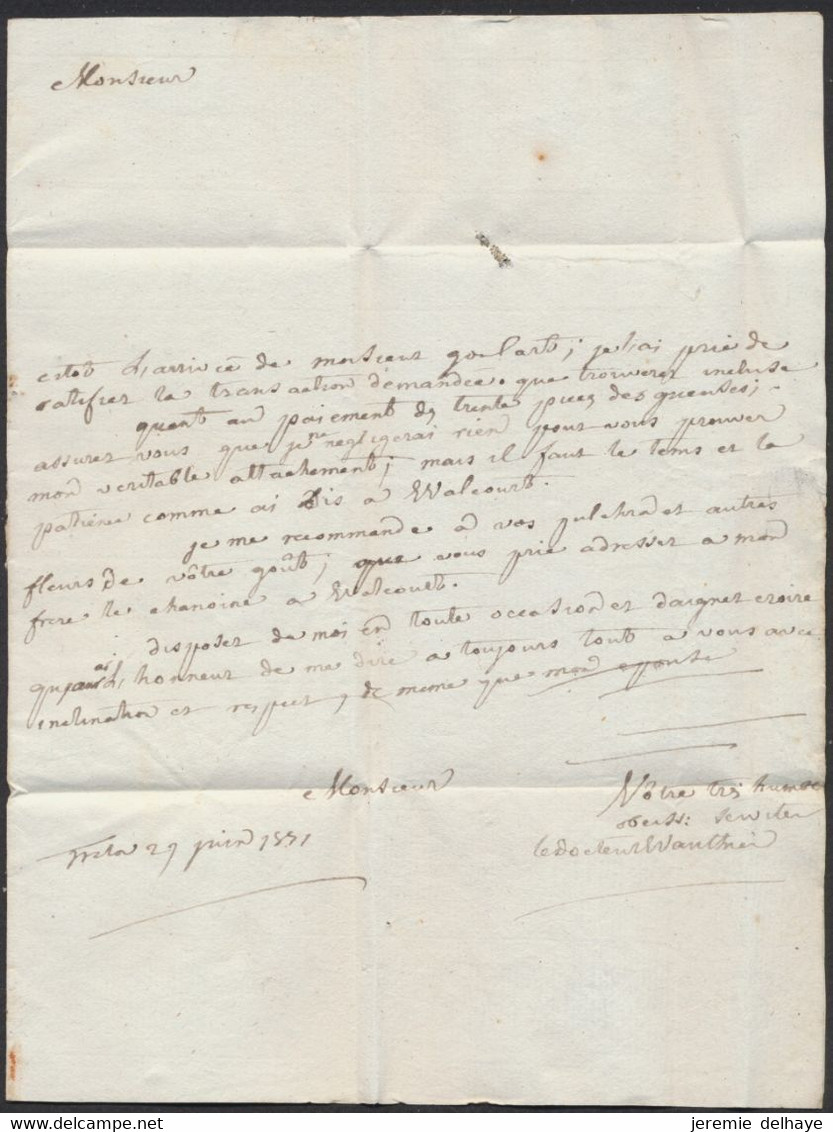 Monsieur
citot L'arrivee de monsieur goulart; je l'ai prié de
ratifier la transaction demandée. que trouverez incluse
quant au paiement des trente pieces des gueuses;
assurez vous que je ne negligerai rien pour vous prouver
mon veritable attachement; mais il faut le tems et la
patience comme ai dis a Walcourt.
je me recommande a vos pulchra et autres
fleurs de vôtre goût, que vous prie adresser a mon
frere le chanoine a Walcourt.
disposez de moi en toute occasion et daignez croire
qu'aurai L'honneur de me dire a toujours tout a vous avec
inclination et respect, de meme que mon epouse
Monsieur
Vôtre tres humble
obeiss: serviteur
le docteur Wauthier
29 juin
jeremie delhaye